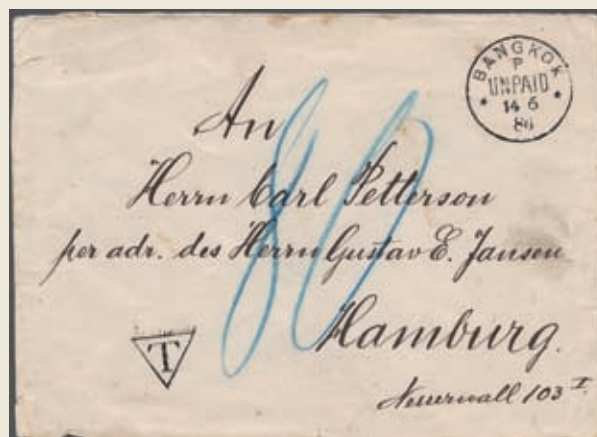 BANGKOK
P
UNPAID
14 6
86
An
80
Herrn Carl Petterson
per adr. des Herrn Gustav E. Jansen
Hamburg.
T
Neuerwall 103 I.